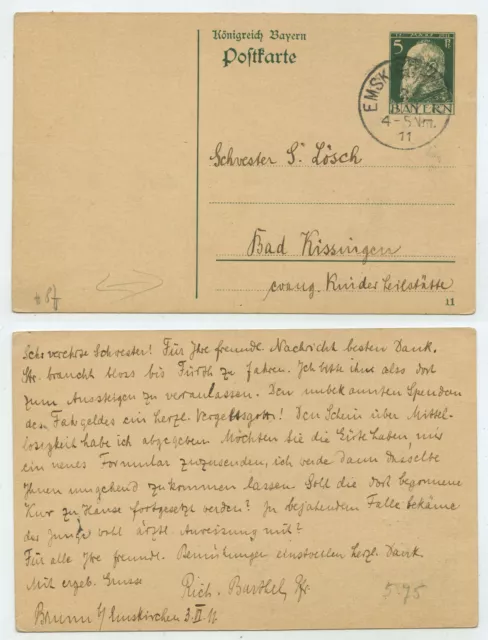 Königreich Bayern
Postkarte
5
BAYERN
EMSK
4-5 Nm.
11
Schwester S. Lösch
Bad Kissingen
evang. Kinderheilstätte
11
Sehr verehrte Schwester! Für Ihre freundl. Nachricht besten Dank.
Er braucht bloss bis Fürth zu fahren. Ich bitte ihn also dort
zum Aussteigen zu veranlassen. Dem unbekannten Spender
des Fahrgeldes ein herzl. Vergeltsgott! Den Schein über Mittel-
losigkeit habe ich abgegeben. Möchten Sie die Güte haben, mir
ein neues Formular zuzusenden, ich werde dann dasselbe
Ihnen umgehend zukommen lassen. Soll die dort begonnene
Kur zu Hause fortgesetzt werden? In bejahendem Falle bekäme
der Junge wohl ärztl. Anweisung mit?
Für alle Ihre freundl. Bemühungen einstweilen herzl. Dank.
Mit ergeb. Gruss
Rich. Barthel, Pfr.
5.95
Brunn b/ Emskirchen 3.